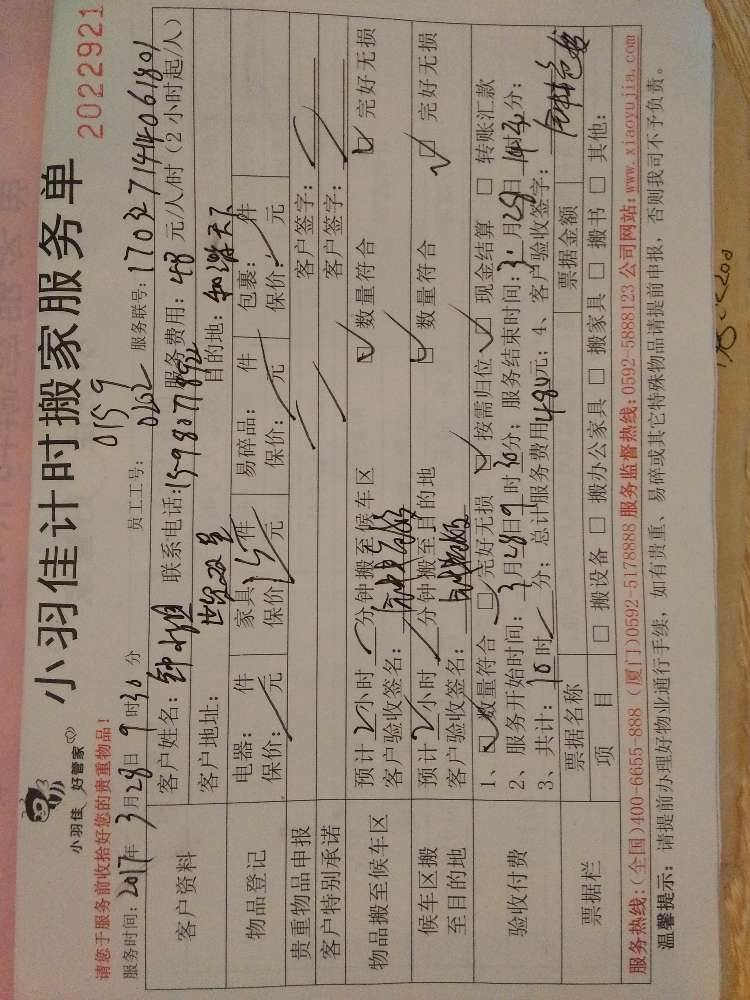 小羽佳计时搬家服务单
2022921
小羽佳 好管家
请您于服务前收拾好您的贵重物品！
0159
服务时间：2017年3月28日9时30分 员工工号：0262 服务联号：170327144061801
客户资料
客户姓名：钟小姐 联系电话：15980771892 服务费用：48元/人/时（2小时起/人）
客户地址：世纪双星 目的地：和谐天下
物品登记
电器： 件 家具 15件 易碎品： 件 包裹： 件
保价： 元 保价 元 保价： 元 保价： 元
贵重物品申报 客户签字：
客户特别承诺 客户签字：
物品搬至候车区
预计2小时 分钟搬至候车区 数量符合 完好无损
客户验收签名：
候车区搬至目的地
预计2小时 分钟搬至目的地 数量符合 完好无损
客户验收签名：
验收付费
1、数量符合 完好无损 按需归位 现金结算 转账汇款
2、服务开始时间：3月28日9时30分；服务结束时间：3月28日14时30分；
3、共计：10时 分；总计服务费用480元；4、客户验收签字：
票据栏
票据名称 票据金额
项目 搬设备 搬办公家具 搬家具 搬书 其他：
服务热线：（全国）400-6655-888（厦门）0592-5178888 服务监督热线：0592-5888123 公司网站：www.xiaoyujia.com
温馨提示：请提前办理好物业通行手续，如有贵重、易碎或其它特殊物品请提前申报，否则我司不予负责。